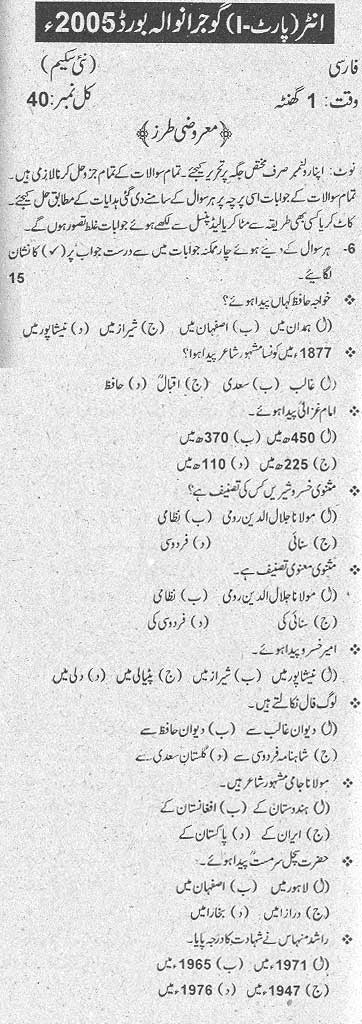 انٹر (پارٹ-I) گوجرانوالہ بورڈ 2005ء
فارسی (نئی سکیم)
وقت: 1 گھنٹہ کل نمبر: 40
﴿معروضی طرز﴾
نوٹ: اپنا رولنمبر صرف مختص جگہ پر تحریر کیجئے۔ تمام سوالات کے تمام جزو حل کرنا لازمی ہیں۔
تمام سوالات کے جوابات اسی پرچہ پر ہر سوال کے سامنے دی گئی ہدایات کے مطابق حل کیجئے۔
کاٹ کر یا کسی بھی طریقہ سے مٹا کر یا لیڈ پنسل سے لکھے ہوئے جوابات غلط تصور ہوں گے۔
6- ہر سوال کے دیئے ہوئے چار ممکنہ جوابات میں سے درست جواب پر (✓) کا نشان
لگائیے۔ 15
❖ خواجہ حافظ کہاں پیدا ہوئے؟
(ا) ہمدان میں (ب) اصفہان میں (ج) شیراز میں (د) نیشاپور میں
❖ 1877ء میں کونسا مشہور شاعر پیدا ہوا؟
(ا) غالب (ب) سعدی (ج) اقبالؒ (د) حافظ
❖ امام غزالیؒ پیدا ہوئے۔
(ا) 450ھ میں (ب) 370ھ میں
(ج) 225ھ میں (د) 110ھ میں
❖ مثنوی خسرو شیریں کس کی تصنیف ہے؟
(ا) مولانا جلال الدین رومی (ب) نظامی
(ج) سنائی (د) فردوسی
❖ مثنوی معنوی تصنیف ہے۔
(ا) مولانا جلال الدین رومی (ب) نظامی
(ج) سنائی کی (د) فردوسی کی
❖ امیر خسرو پیدا ہوئے۔
(ا) نیشاپور میں (ب) شیراز میں (ج) پٹیالی میں (د) دلی میں
❖ لوگ فال نکالتے ہیں۔
(ا) دیوان غالب سے (ب) دیوان حافظ سے
(ج) شاہنامہ فردوسی سے (د) گلستان سعدی سے
❖ مولانا جامی مشہور شاعر ہیں۔
(ا) ہندوستان کے (ب) افغانستان کے
(ج) ایران کے (د) پاکستان کے
❖ حضرت سچل سرمستؒ پیدا ہوئے۔
(ا) لاہور میں (ب) اصفہان میں
(ج) درازا میں (د) بخارا میں
❖ راشد منہاس نے شہادت کا درجہ پایا۔
(ا) 1971ء میں (ب) 1965ء میں
(ج) 1947ء میں (د) 1976ء میں